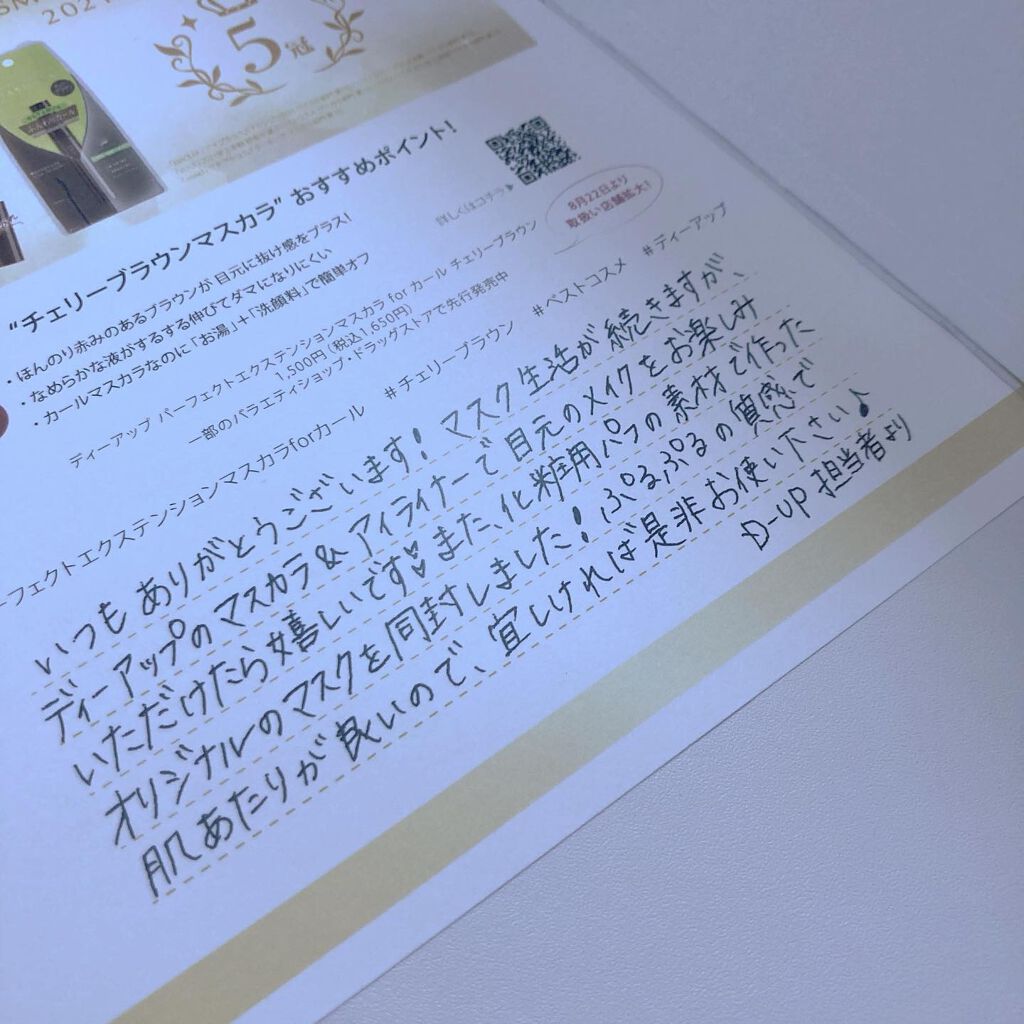 2021
5冠
"チェリーブラウンマスカラ"おすすめポイント!
・ほんのり赤みのあるブラウンが 目元に抜け感をプラス!
・なめらかな液がするする伸びてダマになりにくい
・カールマスカラなのに「お湯」+「洗顔料」で簡単オフ
詳しくはコチラ▶
8月22日より
取扱い店舗拡大!
ディーアップ パーフェクトエクステンションマスカラ for カール チェリーブラウン
1,500円 (税込1,650円)
一部のバラエティショップ・ドラッグストアで先行発売中
ーフェクトエクステンションマスカラforカール #チェリーブラウン #ベストコスメ #ディーアップ
いつもありがとうございます! マスク生活が続きますが、
ディーアップのマスカラ&アイライナーで目元のメイクをお楽しみ
いただけたら嬉しいです♡また、化粧用パフの素材で作った
オリジナルのマスクを同封しました!ぷるぷるの質感で
肌あたりが良いので、宜しければ是非お使い下さい♪
D-UP 担当者より